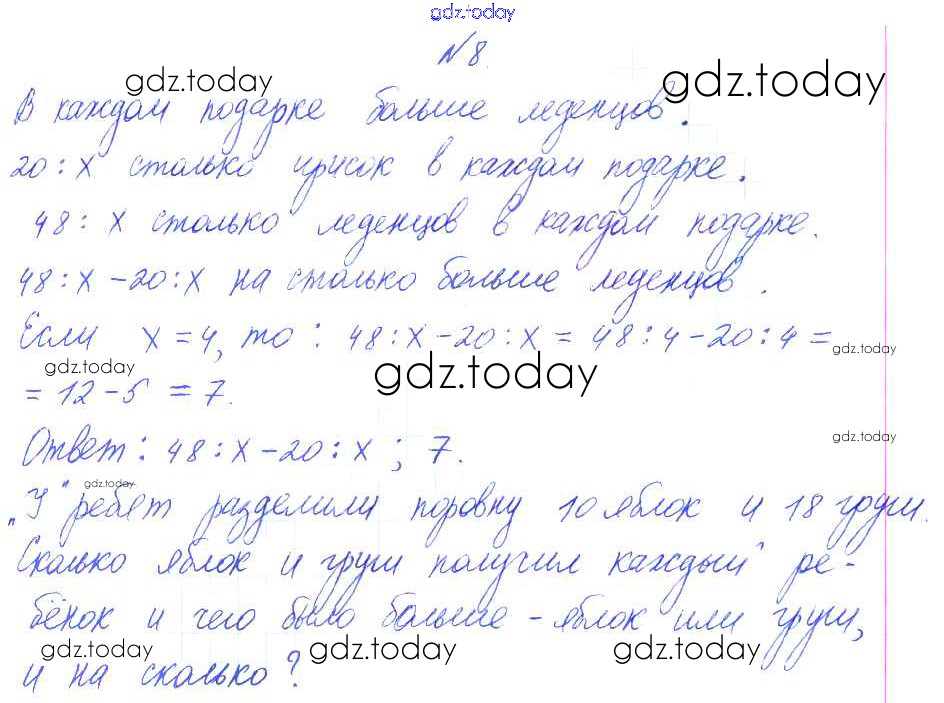 gdz.today
№8.
gdz.today gdz.today
В каждом подарке больше леденцов.
20 : x столько ирисок в каждом подарке.
48 : x столько леденцов в каждом подарке.
48 : x - 20 : x на столько больше леденцов.
Если x = 4, то : 48 : x - 20 : x = 48 : 4 - 20 : 4 =
gdz.today gdz.today gdz.today
= 12 - 5 = 7.
Ответ : 48 : x - 20 : x ; 7.
gdz.today
gdz.today
"У" ребят разделили поровну 10 яблок и 18 груш.
Сколько яблок и груш получил каждый ре-
бёнок и чего было больше - яблок или груш,
gdz.today gdz.today gdz.today
и на сколько?